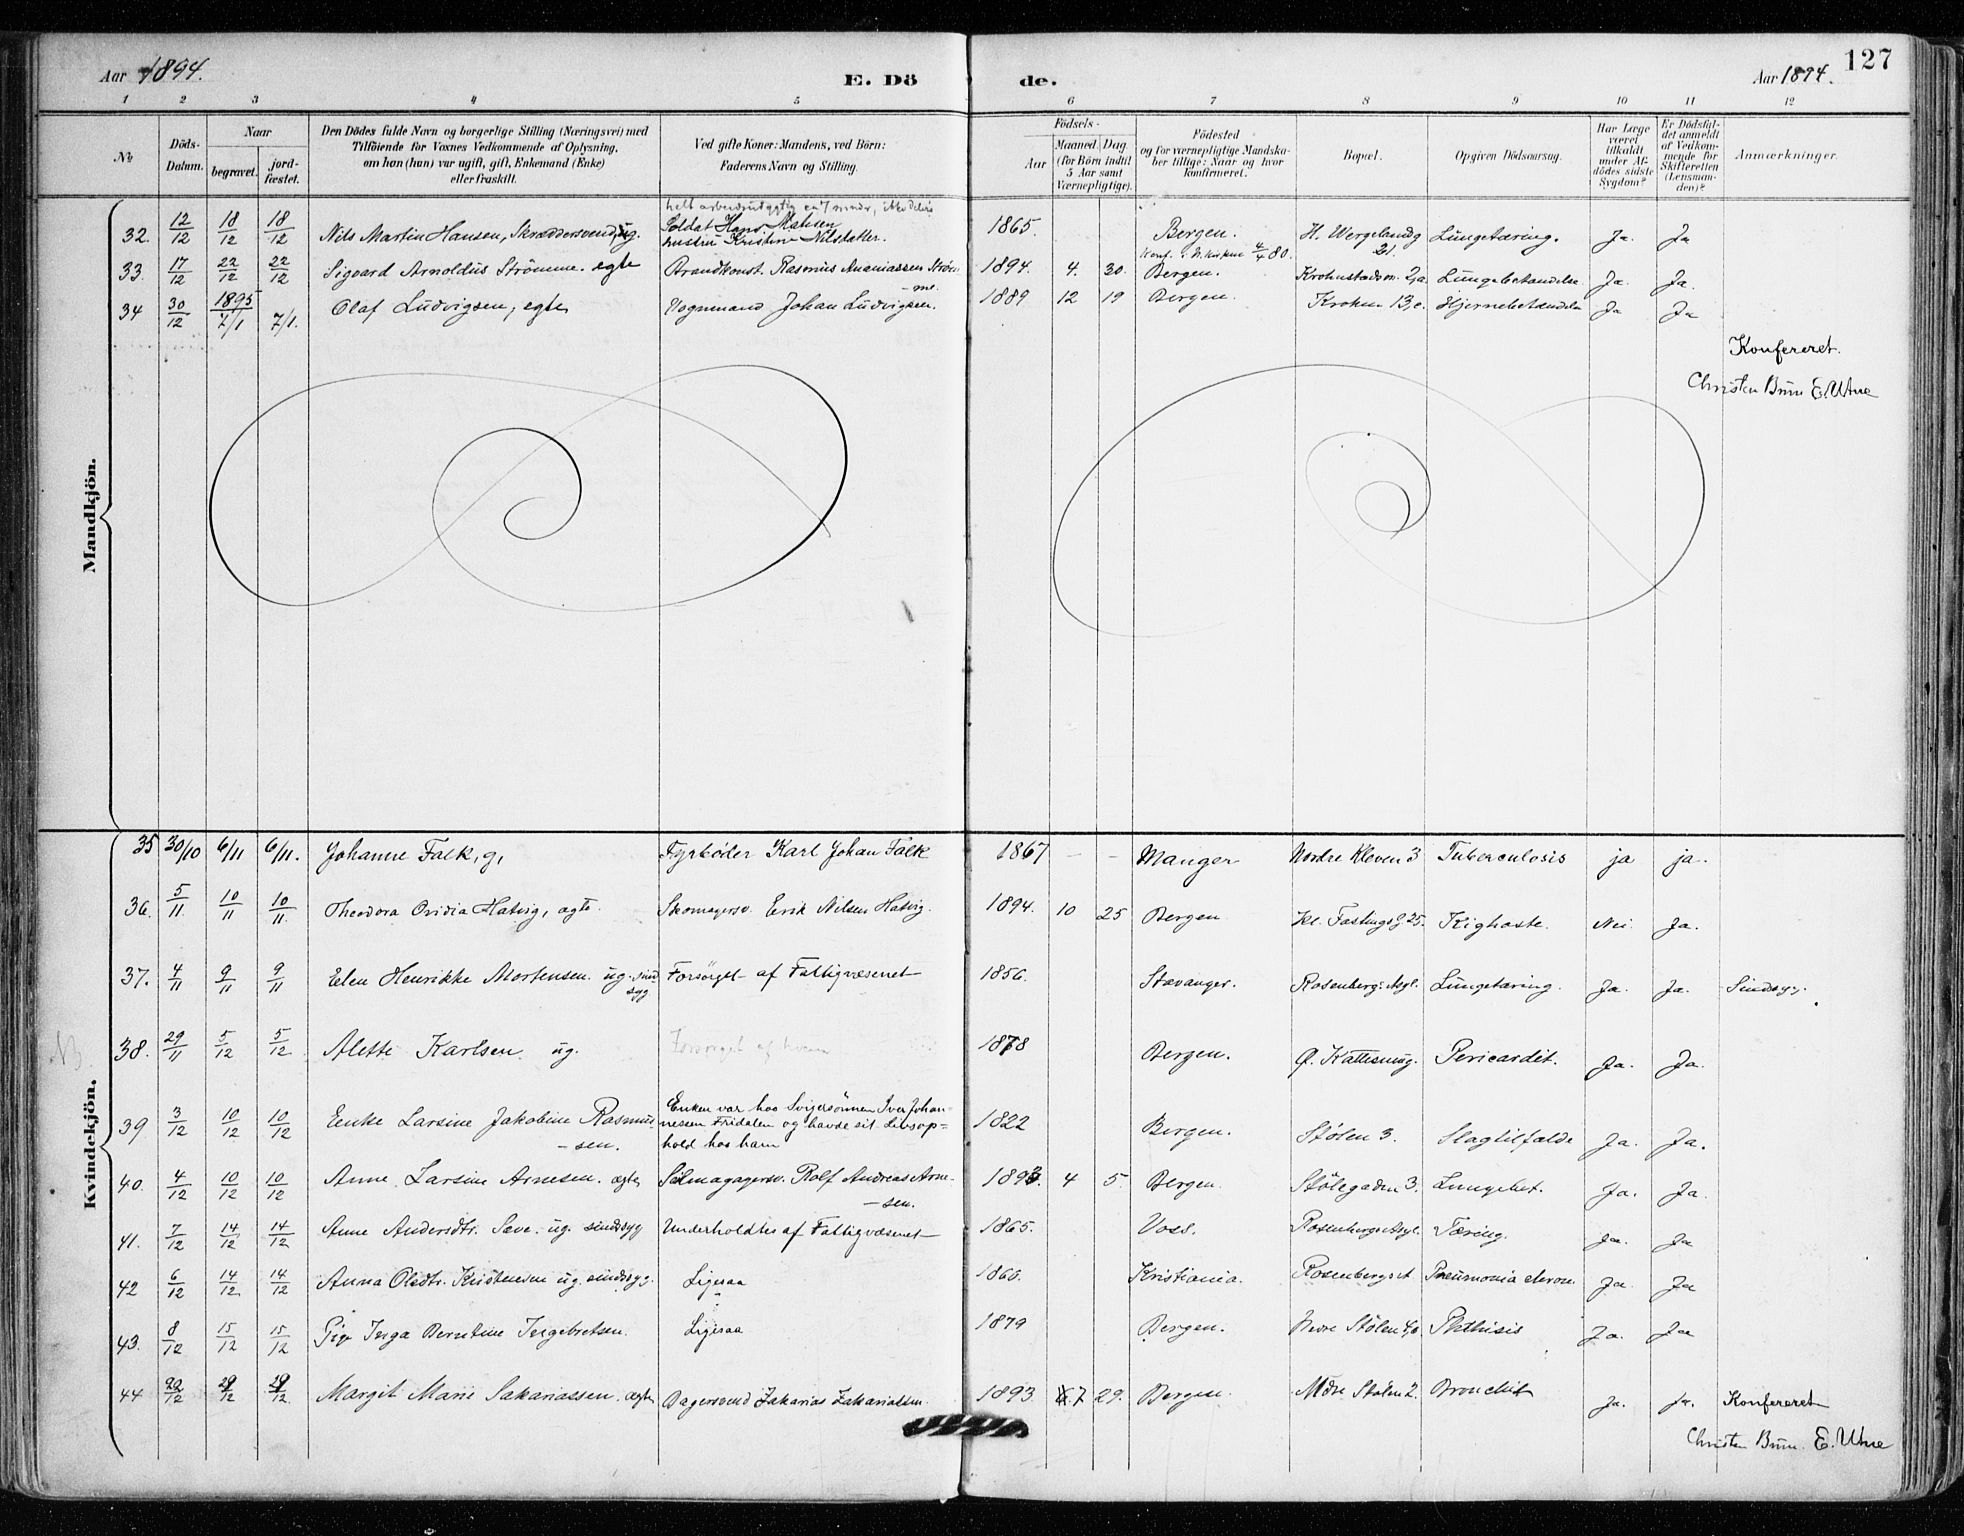 Aar 1894. E. Dö de. Aar 1894. 127
1 2 3 4 5 6 7 8 9 10 11 12
No. Döds-Datum. Naar begravet. jordfæstet. Den Dödes fulde Navn og borgerlige Stilling (Næringsvei) med Tilföiende for Voxnes Vedkommende af Oplysning, om han (hun) var ugift, gift, Enkemand (Enke) eller fraskilt. Ved gifte Koner: Mandens, ved Börn: Faderens Navn og Stilling. Födsels- Aar Maaned. Dag (for Börn indtil 5 Aar samt Værnepligtige). Födested og for værnepligtige Mandskaber tillige: Naar og hvor konfirmeret. Bopæl. Opgiven Dödsaarsag. Har Læge været tilkaldt under Afdödes sidste Sygdom? Er Dödsfaldet anmeldt af Vedkommende for Skifteretten (Lensmanden)? Anmærkninger.
Mandkjön.
32. 12/12 18/12 18/12 Nils Martin Hansen, Skræddersvend, ug. Soldat Hans Madsen hustru Kristine Nilsdatter. 1865. Bergen. H. Wergelandg 21. Lungetæring. Ja. Ja
33. 17/12 22/12 22/12 Sigvard Arnoldus Strömme. egte Brandkonst. Rasmus Ananiassen Strömme. 1894. 4. 30. Bergen. 2,a Lungebetændelse. Ja. Ja.
34 30/12 1895 7/1 7/1. Olaf Ludvigsen, egte Vognmand Johan Ludvigsen. 1889 12 19 Bergen. Krohn 13,c. Hjernebetændelse Ja Ja
Konfereret.
Christen Brun E. Utne
Kvindekjön.
35 30/10 6/11 6/11. Johanne Falk, g, Fyrbøder Karl Johan Falk 1867 – – Manger Nordre Kleven 3 Tuberculosis ja ja.
36. 5/11. 10/11 10/11. Theodora Ovidia Hatvig, ægte. Skomagersv. Erik Nilsen Hatvig. 1894. 10 25 Bergen Kl. Fastings g. 25. Kighoste. Nei. Ja.
37. 4/11 9/11 9/11 Elen Henrikke Mortensen. ug. sindsyg Forsörget af Fattigvæsenet 1856. Stavanger. Rosenbergs Asyl. Lungetæring. Ja. Ja. Sindssyg.
38. 29/11 5/12 5/12 Alette Karlsen ug. Forsörget af hvem 1878 Bergen. Ø. Kattesmug. Pericardit. Ja. Ja.
39 3/12 10/12 10/12 Enke Larsine Jakobine Rasmussen. Enken var hos Svigersönnen Iver Johannesen Fridalen og havde sit Livsophold hos ham 1822 Bergen. Stølen 3. Slagtilfælde Ja. Ja.
40. 4/12 10/12 10/12 Anne Larsine Arnesen. ægte Seilmagersv. Rolf Andreas Arnesen. 1893. 4 5. Bergen. Stølegaden 3. Lungebet. Ja. Ja.
41. 7/12 14/12 14/12 Anne Andersdtr. Sæve. ug. sindssyg Underholdtes af Fattigvæsenet 1865. Voss. Rosenbergs Asyl. Tæring. Ja. Ja
42 6/12 14/12 14/12 Anna Olsdtr. Kristensen ug. sindssyg. Ligesaa 1860. Kristiania. Rosenbergs A Pneumonia chron. Ja. Ja
43. 8/12 15/12 15/12 Pige Inga Berntine Ingebretsen. Ligesaa 1879 Bergen. Nedre Stølen Phthisis Ja. Ja
44 22/12 29/12 29/12 Margit Marie Sakariassen. ægte Bagersvend Zakarias Zakariassen. 1893 7 29. Bergen Ndre Stølen 2. Bronchit Ja. Ja. Konfereret
Christen Brun. E. Utne